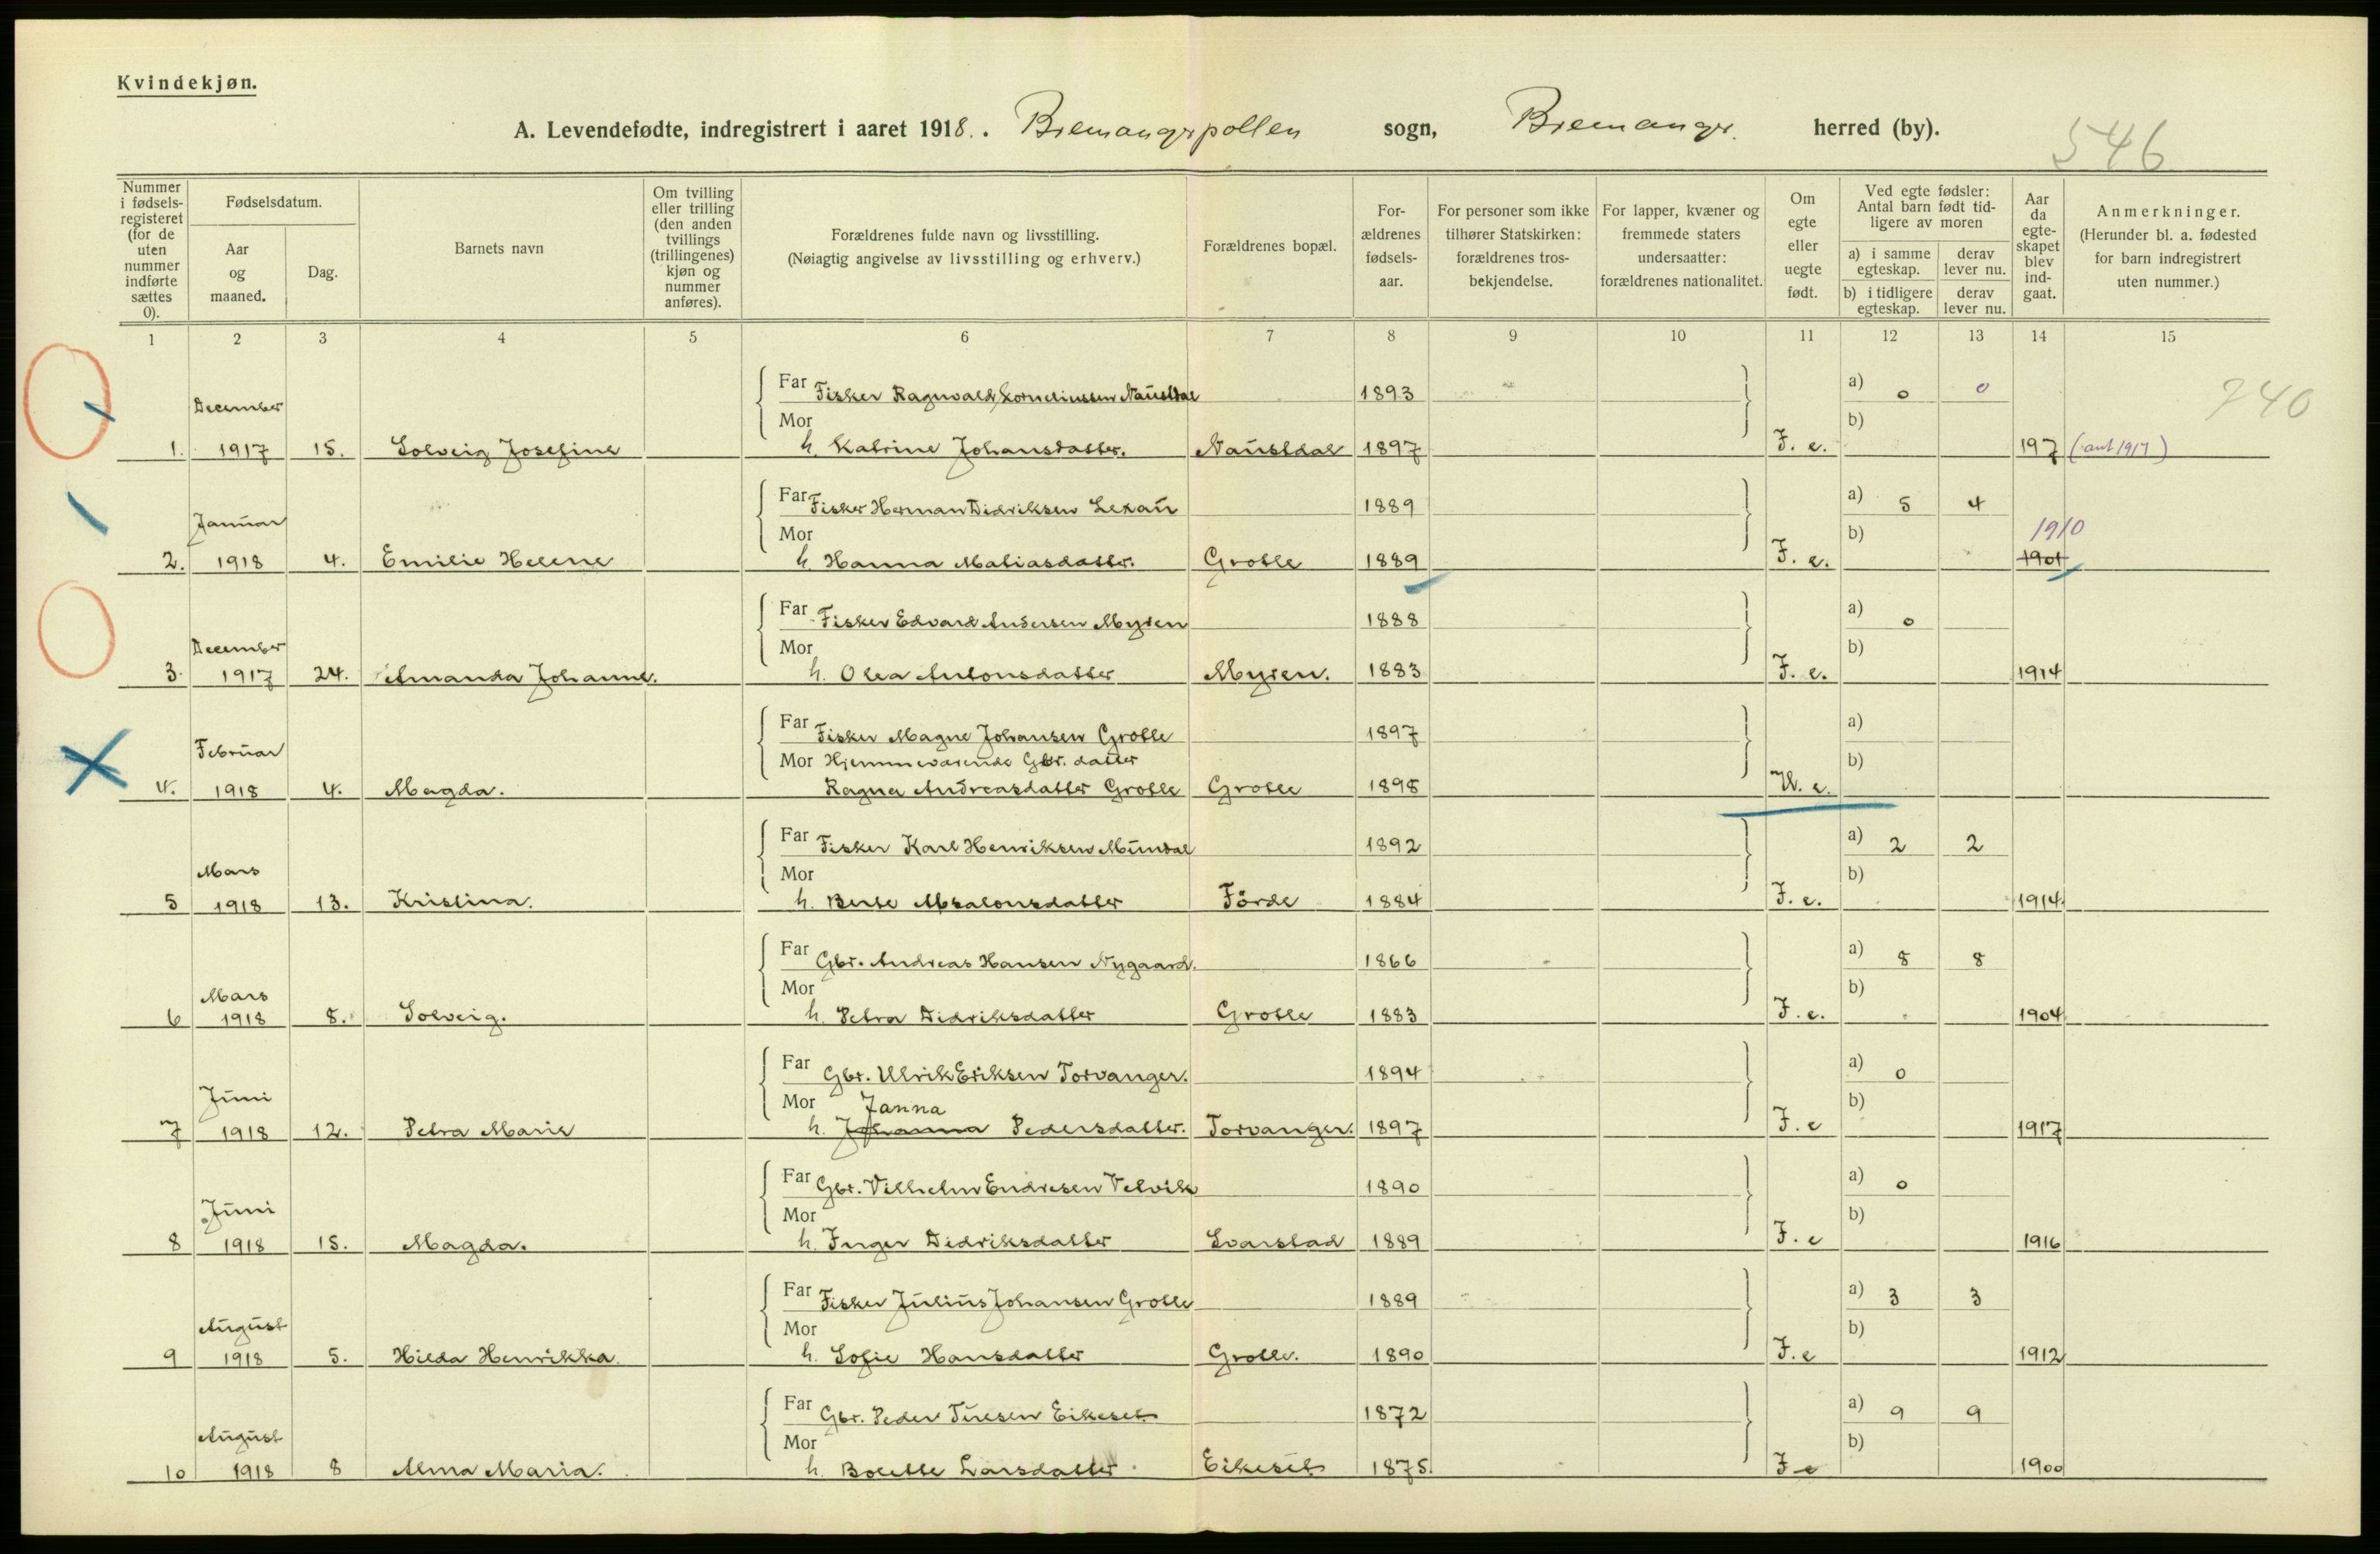 Kvindekjøn.
A. Levendefødte, indregistrert i aaret 1918. . Bremangerpollen sogn, Bremanger. herred (by).
546
Nummer i fødsels-registeret (for de uten nummer indførte sættes 0).
Fødselsdatum.
Aar og maaned.
Dag.
Barnets navn
Om tvilling eller trilling (den anden tvillings (trillingenes) kjøn og nummer anføres).
Forældrenes fulde navn og livsstilling.
(Nøiagtig angivelse av livsstilling og erhverv.)
Forældrenes bopæl.
For-ældrenes fødsels-aar.
For personer som ikke tilhører Statskirken: forældrenes tros-bekjendelse.
For lapper, kvæner og fremmede staters undersaatter: forældrenes nationalitet.
Om egte eller uegte født.
Ved egte fødsler: Antal barn født tid-ligere av moren
a) i samme egteskap.
derav lever nu.
b) i tidligere egteskap.
derav lever nu.
Aar da egte-skapet blev ind-gaat.
Anmerkninger.
(Herunder bl. a. fødested for barn indregistrert uten nummer.)
1 2 3 4 5 6 7 8 9 10 11 12 13 14 15
740
December Far Fisker Ragnvald Korneliussen Naustdal 1893 a) 0 0
Mor b)
1. 1917 15. Solveig Josefine h. Katrine Johansdatter. Naustdal 1897 F. e. 197 (ant 1917)
Far Fisker Herman Didriksen Lexau 1889 a) 5 4
Januar Mor b) 1910
2. 1918 4. Emilie Helene h. Hanna Matiasdatter. Grotle 1889 F. e. 1901
Far Fisker Edvard Andersen Myren 1888 a) 0
December Mor b)
3. 1917 24. Amanda Johanne. h. Olea Antonsdatter Myren. 1883 F. e. 1914
Far Fisker Magne Johansen Grotle 1897 a)
Februar Mor Hjemmeværende Gbr. datter b)
4. 1918 4. Magda. Ragna Andreasdatter Grotle Grotle 1898 U. e.
Far Fisker Karl Henriksen Mundal 1892 a) 2 2
Mars Mor b)
5 1918 13. Kristina. h. Berte Absalonsdatter Förde 1884 F. e. 1914.
Far Gbr. Andreas Hansen Nygaard. 1866 a) 8 8
Mars Mor b)
6 1918 8. Solveig. h. Petra Didriksdatter Grotle 1883 F. e. 1904
Far Gbr. Ulrik Eriksen Torvanger. 1894 a) 0
Juni Mor Janna b)
7 1918 12. Petra Marie h. Johanna Pedersdatter. Torvanger. 1897 F. e 1917
Far Gbr. Vilhelm Endresen Vetvik 1890 a) 0
Juni Mor b)
8 1918 15. Magda. h. Inger Didriksdatter Svarstad 1889 F. e 1916
Far Fisker Julius Johansen Grotle 1889 a) 3 3
August Mor b)
9 1918 5. Hilda Henrikka. h. Sofie Hansdatter Grotle. 1890 F. e 1912
Far Gbr. Peder Turesen Eikeset 1872 a) 9 9
August Mor b)
10 1918 8 Alma Maria. h. Bolette Larsdatter Eikeset 1875. F e 1900